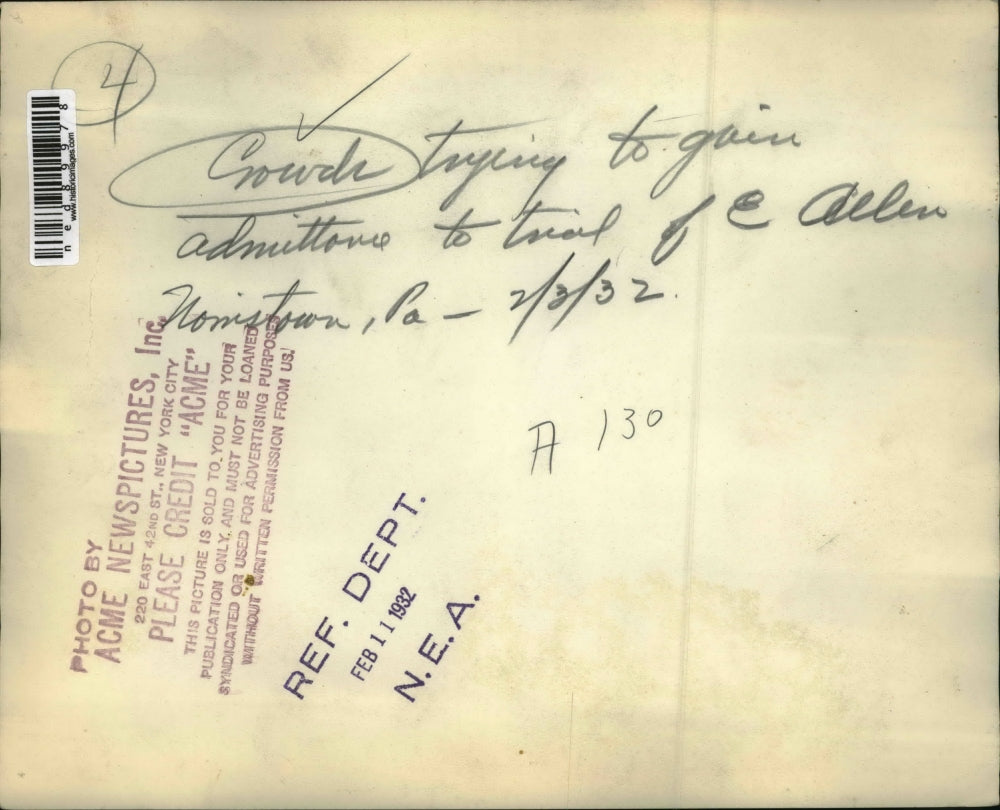 4
Crowds trying to gain
admittance to trial of E Allen
Norristown, Pa — 2/3/32.
A 130
PHOTO BY
ACME NEWSPICTURES, Inc.
220 EAST 42ND ST., NEW YORK CITY
PLEASE CREDIT "ACME"
THIS PICTURE IS SOLD TO YOU FOR YOUR
PUBLICATION ONLY, AND MUST NOT BE LOANED
SYNDICATED OR USED FOR ADVERTISING PURPOSES
WITHOUT WRITTEN PERMISSION FROM US.
REF. DEPT.
FEB 11 1932
N. E. A.
ned89978
www.historicimages.com